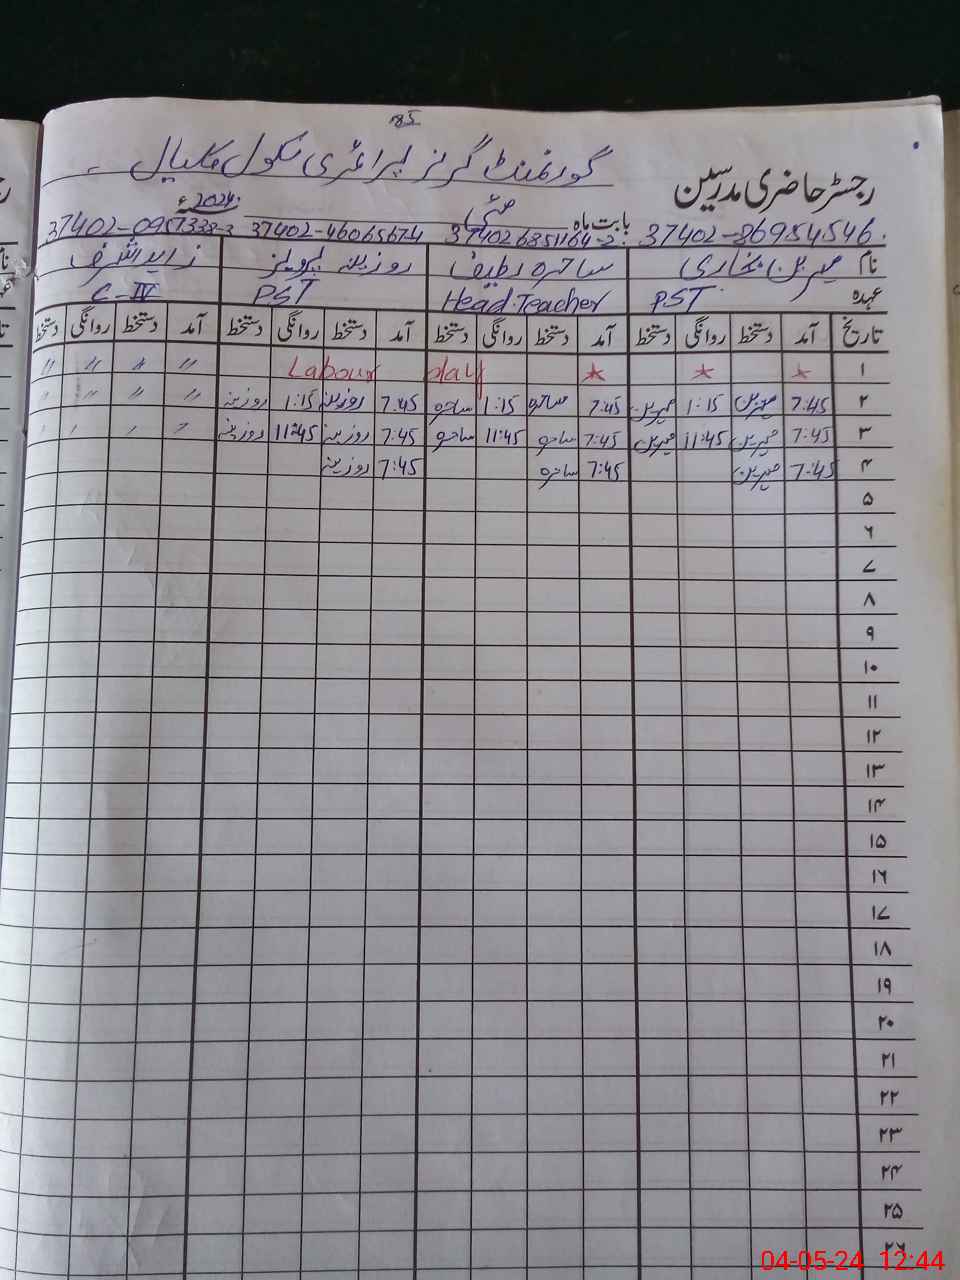 85
گورنمنٹ گرلز پرائمری سکول ملیال
رجسٹر حاضری مدرسین
بابت ماہ مئی 2024ء
37402-86954546. 37402 6851164-2 37402-46065674 37402-0957338-3
نام مہرین بخاری ساحرہ لطیف روزینہ پرویز زاہد اشرف
عہدہ PST Head Teacher PST C-IV
تاریخ آمد دستخط روانگی دستخط آمد دستخط روانگی دستخط آمد دستخط روانگی دستخط آمد دستخط روانگی دستخط
۱ Labour day
۲ 7:45 مہرین 1:15 مہرین 7:45 ساحرہ 1:15 ساحرہ 7:45 روزینہ 1:15 روزینہ 〃 〃 〃 〃
۳ 7:45 مہرین 11:45 مہرین 7:45 ساحرہ 11:45 ساحرہ 7:45 روزینہ 11:45 روزینہ 〃 〃 〃 〃
۴ 7:45 مہرین 7:45 ساحرہ 7:45 روزینہ
۵
۶
۷
۸
۹
۱۰
۱۱
۱۲
۱۳
۱۴
۱۵
۱۶
۱۷
۱۸
۱۹
۲۰
۲۱
۲۲
۲۳
۲۴
۲۵
۲۶
04-05-24 12:44